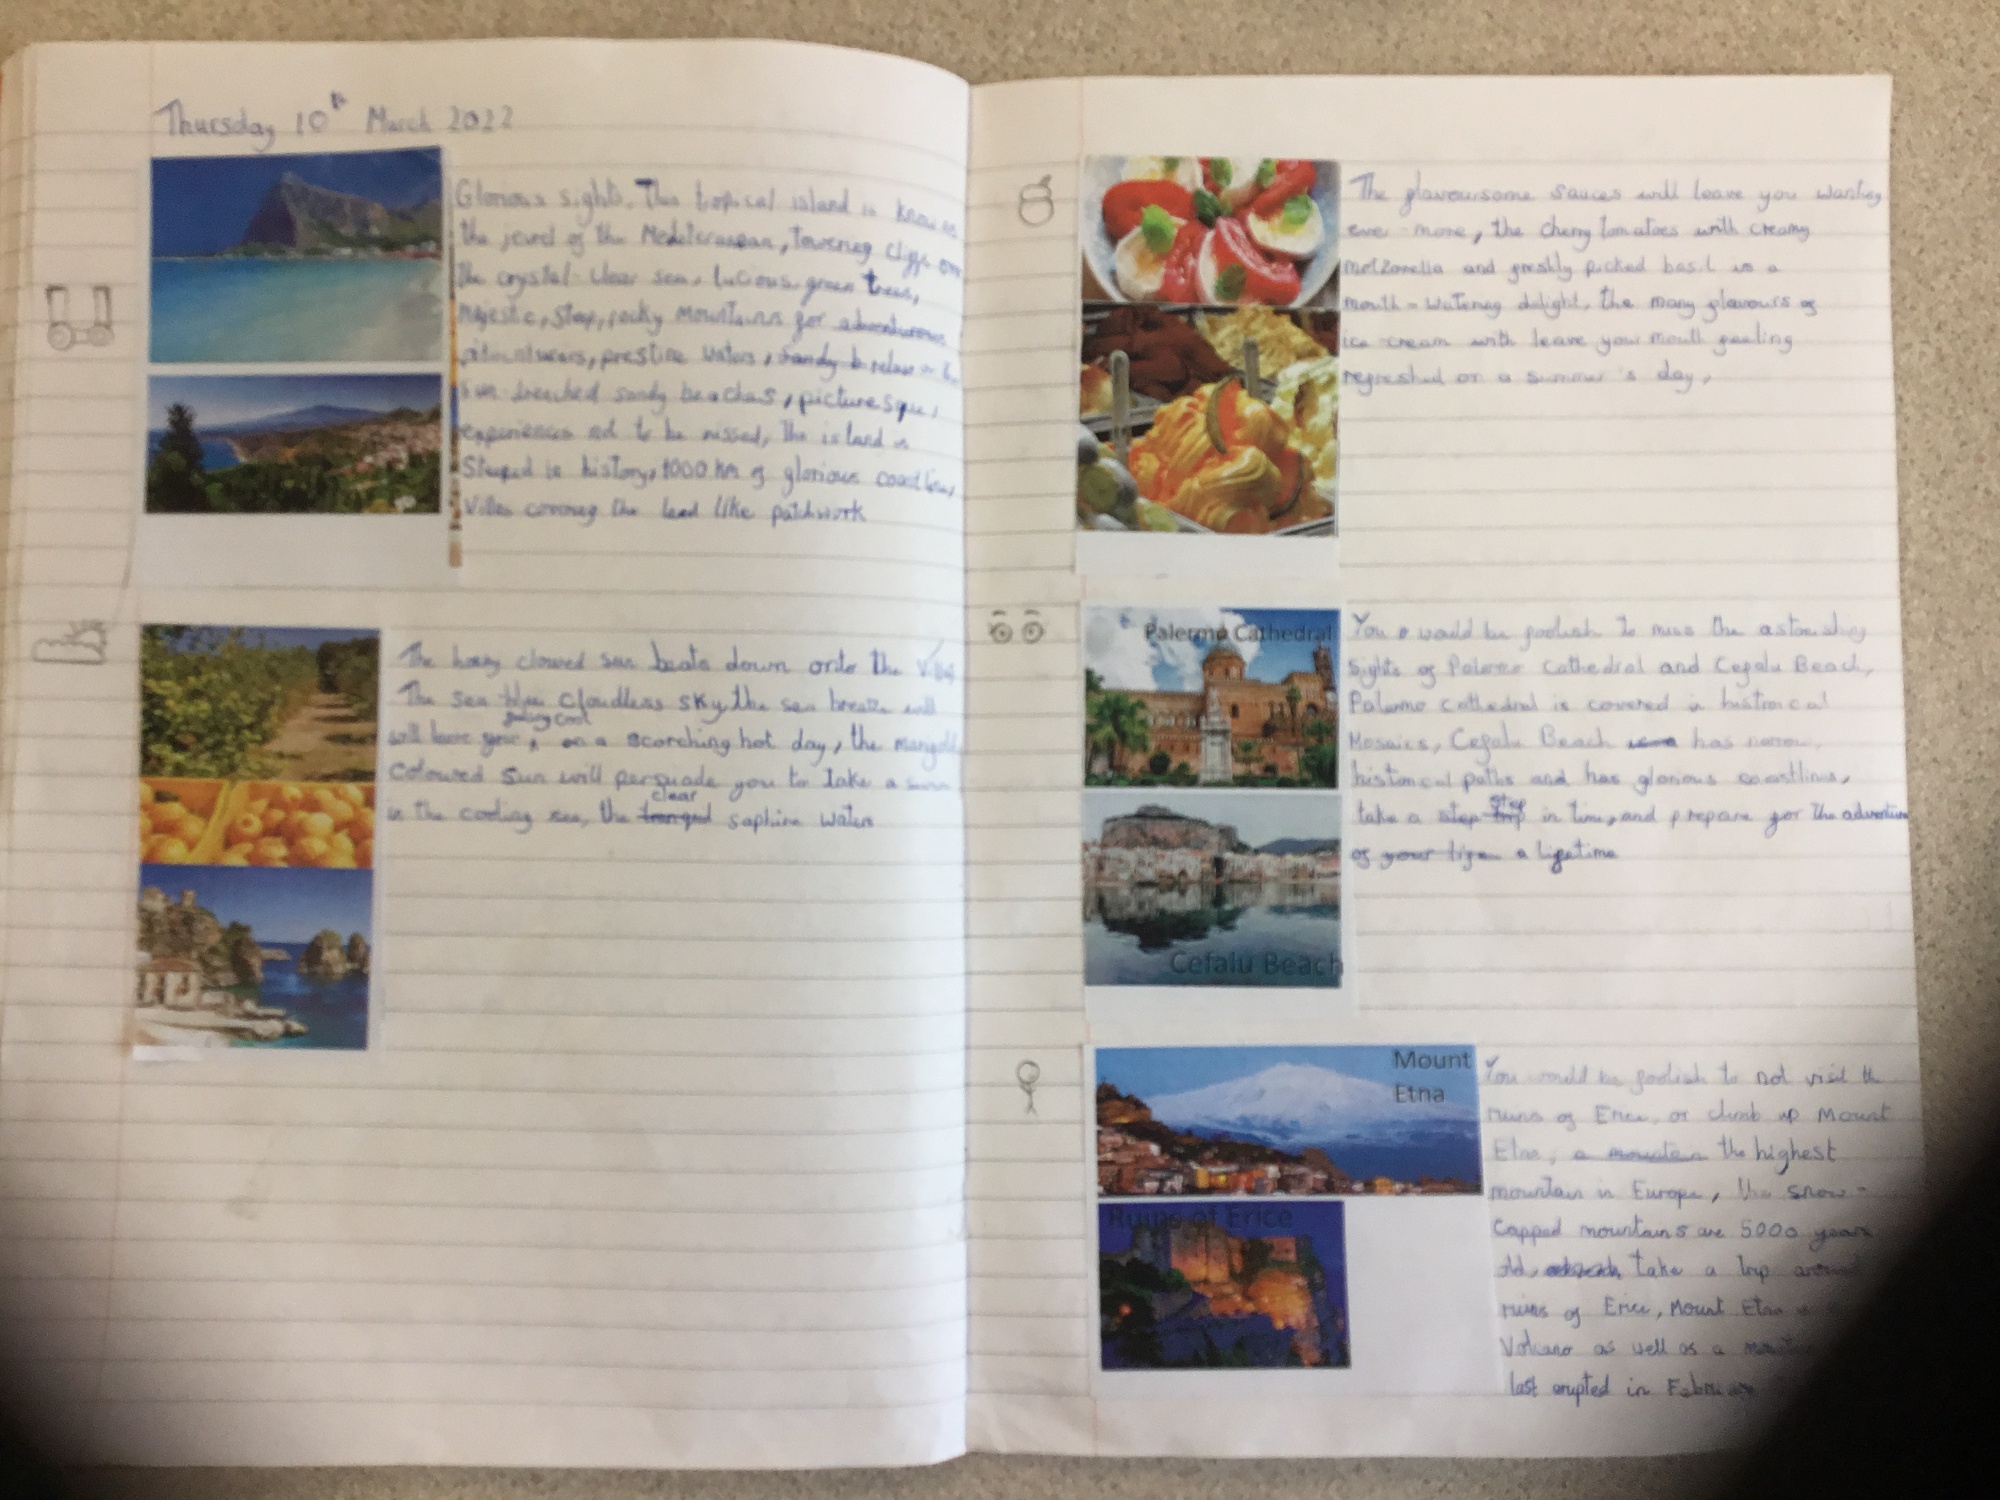 Thursday 10th March 2022
Glorious sights. This tropical island is known as
the jewel of the Mediterranean, towering cliffs over
the crystal clear sea, lucious green trees,
majestic, steep, rocky mountains for adventurous
prestine waters, sandy b relax
sun drenched sandy beaches, picturesque,
experiences not to be missed, the island is
Steeped in history, 1000 km of glorious coastline,
Villas covering the land like patchwork
The honey clowed sun beats down onto the
The sea cloudless sky, the sea breeze will
feeling cool
will leave you, on a scorching hot day, the marigold
coloured sun will persuade you to take a swim
clear
in the cooling sea, the tranquil saphire waters
The flavoursome sauces will leave you wanting
ever more, the cherry tomatoes with creamy
motzorella and freshly picked basil is a
mouth-watering delight, the many flavours of
ice-cream with leave your mouth feeling
refreshed on a summer's day,
Palermo Cathedral
Cefalu Beach
You would be foolish to miss the astonishing
sights of Palermo cathedral and Cefalu Beach,
Palermo cathedral is covered in historical
Mosaics, Cefalu Beach has narrow,
historical paths and has glorious coastlines,
step
take a step trip in time, and prepare for the adventure
of your life a lifetime
Mount
Etna
Ruins of Erice
You would be foolish to not visit the
ruins of Erice, or climb up Mount
Etna, a mountain the highest
mountain in Europe, the snow-
Capped mountains are 5000 years
old, take a trip around
ruins of Erice, Mount Etna is
Volcano as well as a
last erupted in